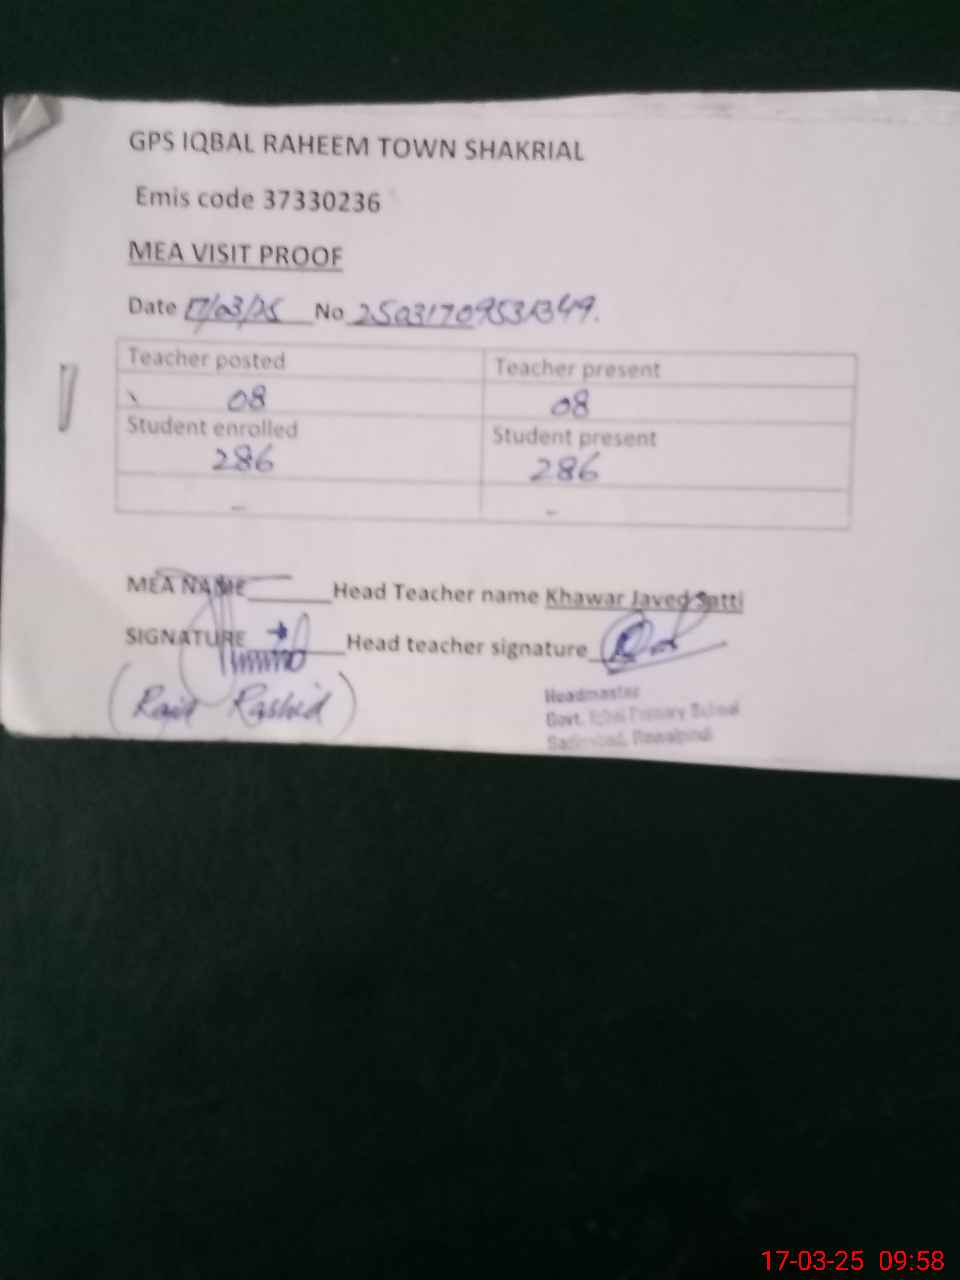 GPS IQBAL RAHEEM TOWN SHAKRIAL
Emis code 37330236
MEA VISIT PROOF
Date 17/03/25 No
Teacher posted Teacher present
08 08
Student enrolled Student present
286 286
- -
MEA NAME Head Teacher name Khawar Javed Satti
SIGNATURE Head teacher signature
( Rashid )
Headmaster
Govt. Primary School
Rawalpindi
17-03-25 09:58